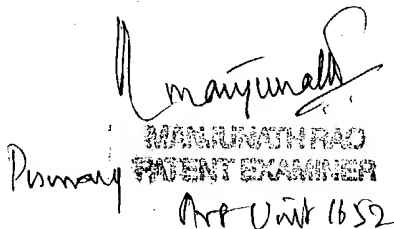 Manjunath
MANJUNATH RAO
Primary PATENT EXAMINER
Art Unit 1652